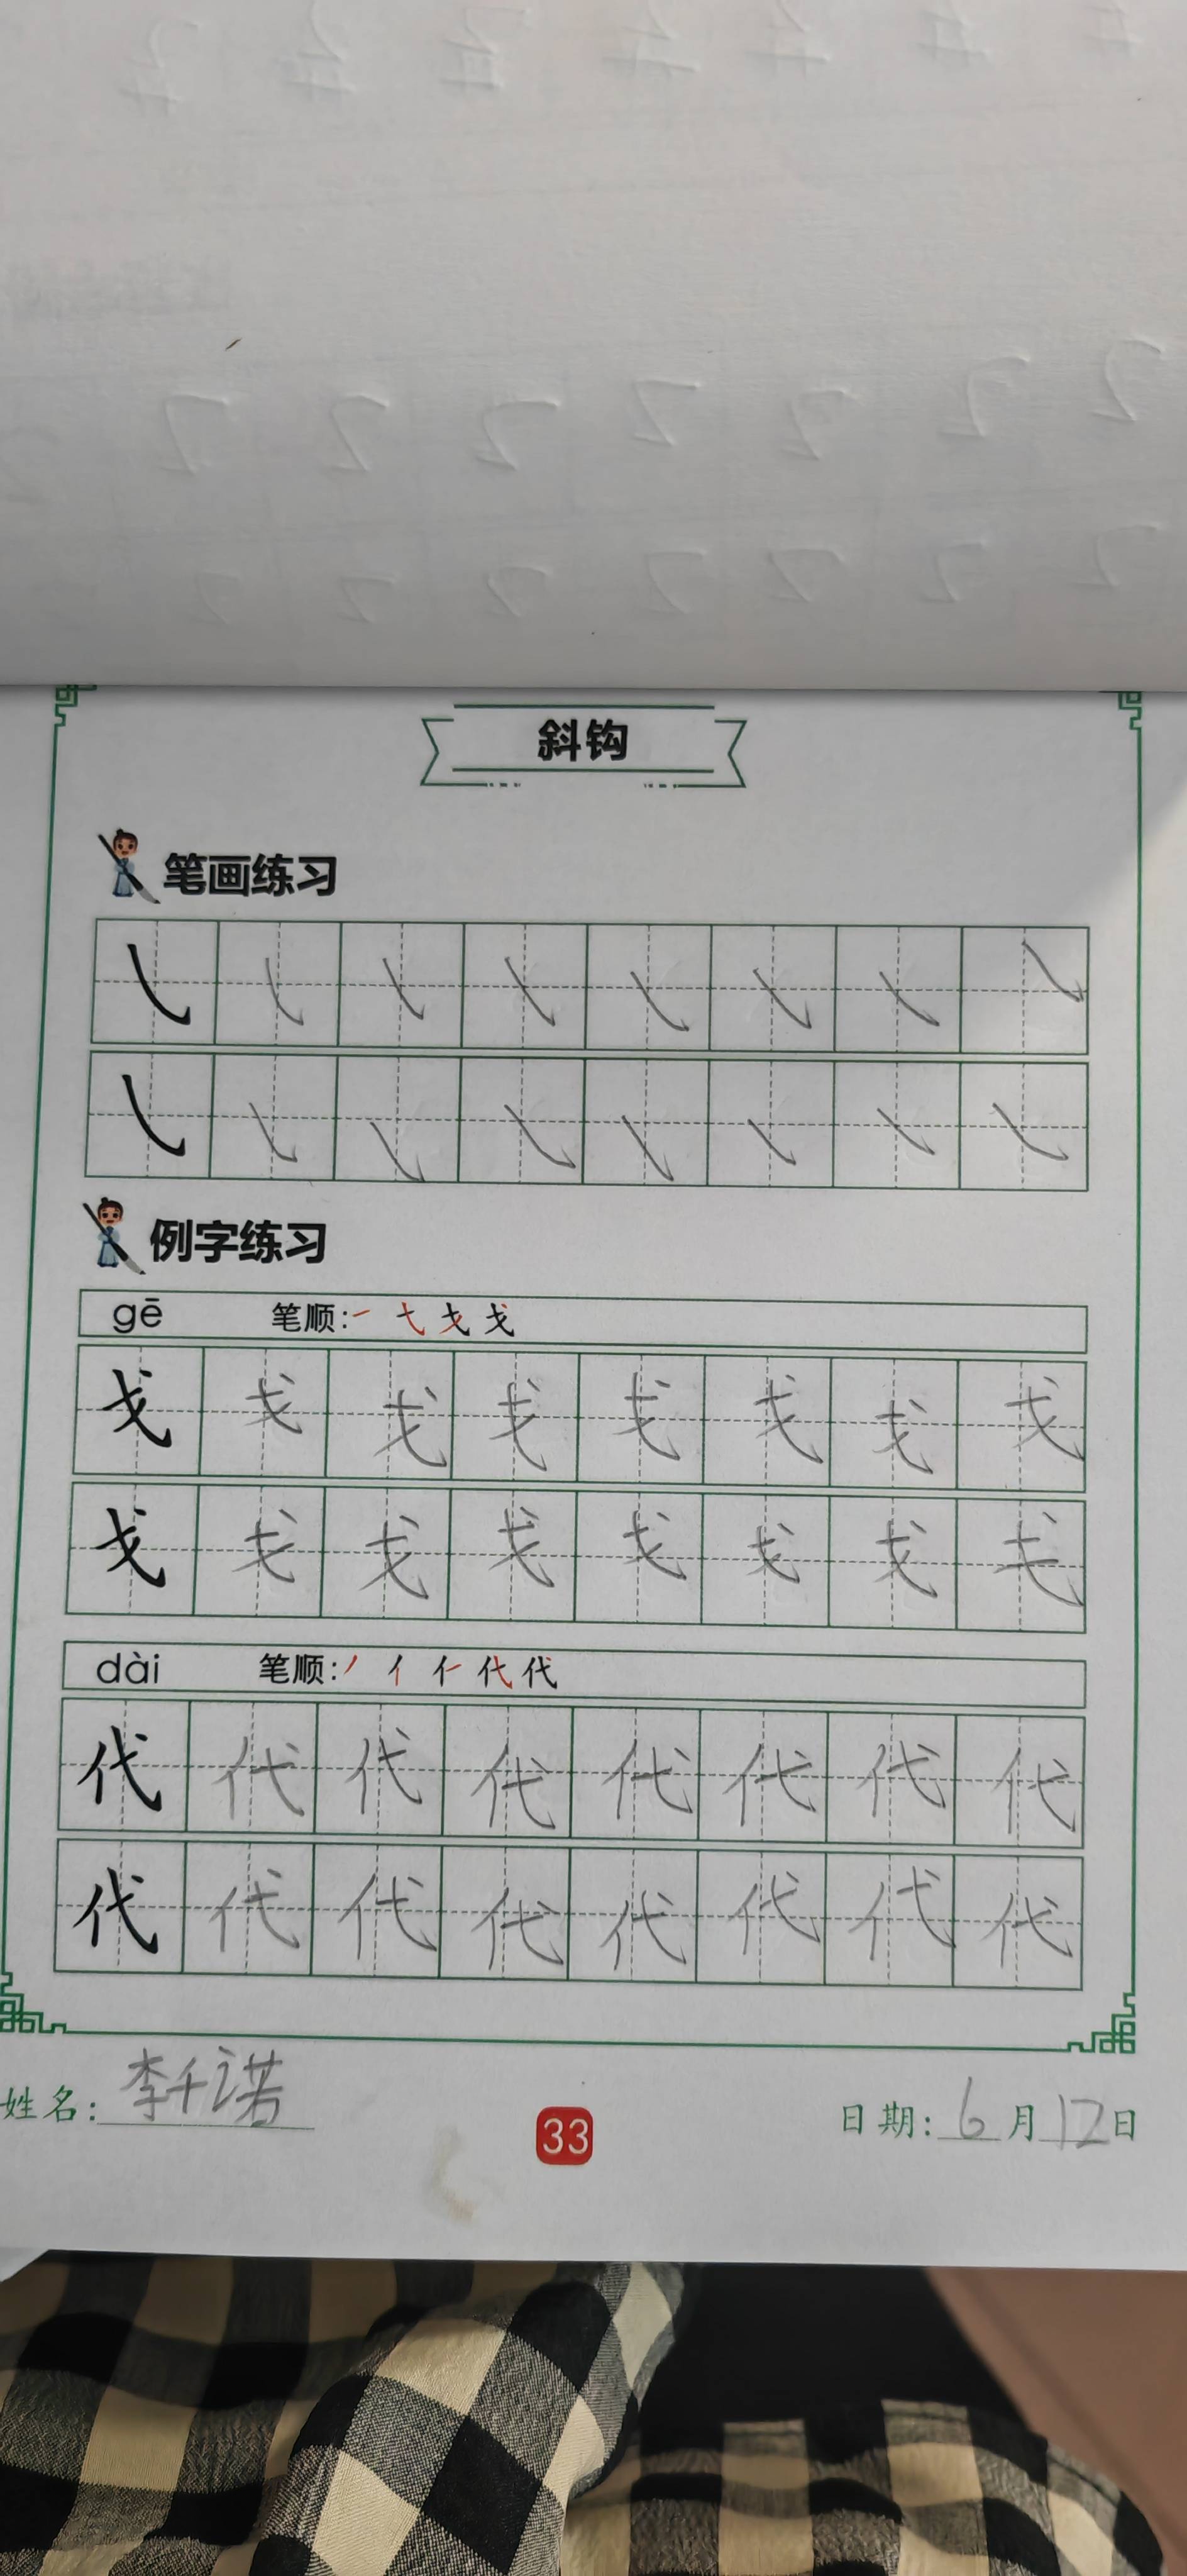 斜钩
笔画练习
㇂ ㇂ ㇂ ㇂ ㇂ ㇂ ㇂ ㇂
㇂ ㇂ ㇂ ㇂ ㇂ ㇂ ㇂ ㇂
例字练习
gē 笔顺:
戈 戈 戈 戈 戈 戈 戈 戈
戈 戈 戈 戈 戈 戈 戈 戈
dài 笔顺:
代 代 代 代 代 代 代 代
代 代 代 代 代 代 代 代
姓名: 李千诺 33 日期: 6月12日